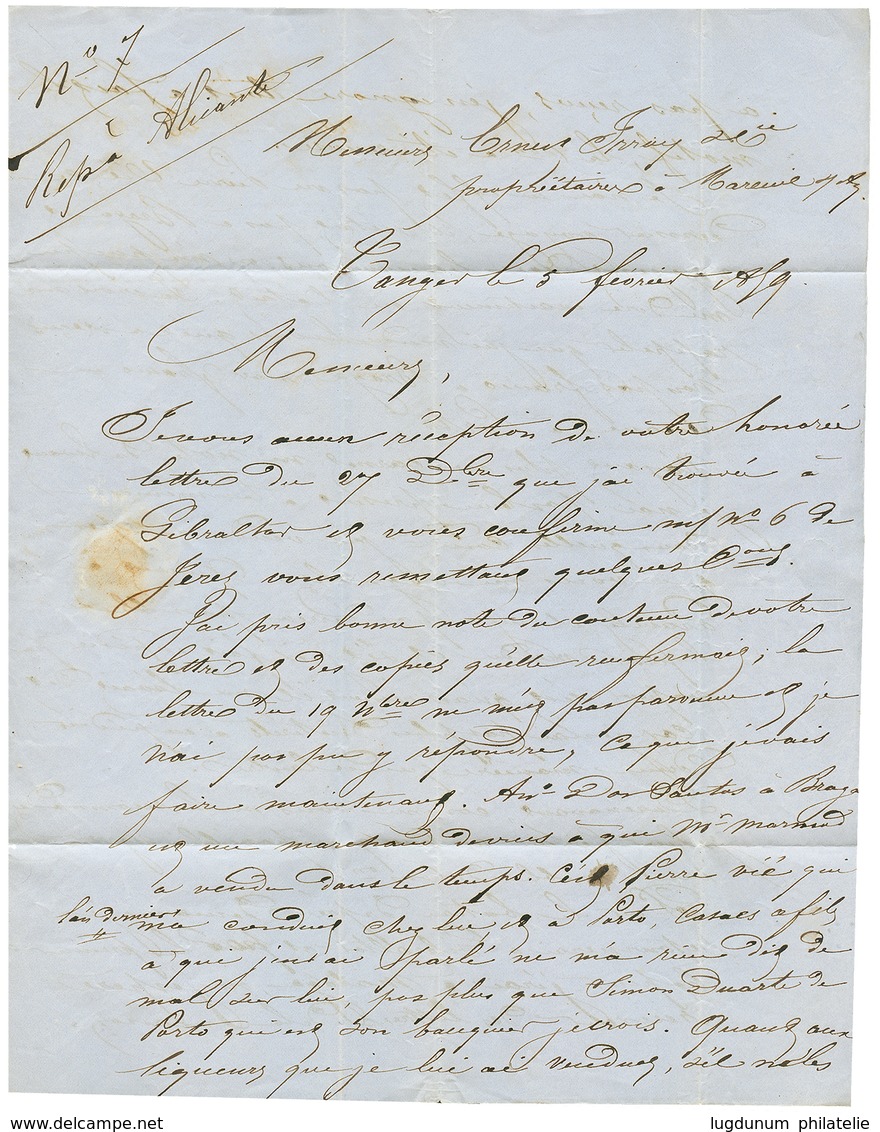 N° 7
Rep à Alicante
Messieurs Ernest Irroy & Cie
propriétaires à Mareuil s/ Ay
Tanger le 5 février 1859.
Messieurs,
Je vous accuse réception de votre honorée
lettre du 27 Dbre que j'ai trouvée à
Gibraltar et vous confirme m/ N° 6 de
Jerez vous remettant quelques Cons.
J'ai pris bonne note du contenu de votre
lettre et des copies qu'elle renfermait, la
lettre du 19 Nbre ne m'est pas parvenue et je
n'ai pas pu y répondre, ce que je vais
faire maintenant. Anto Dos Santos à Braga
est un marchand de vins à qui Mr
a vendu dans le temps. C'est Pierre vié qui
l'an dernier
m'a conduit chez lui et à Porto, Casaes & fils
à qui j'en ai parlé ne m'a rien dit de
mal sur lui, pas plus que Simon Duarte de
Porto qui est son banquier je crois. Quant aux
liqueurs que je lui ai vendues, s'il ne les
lugdunum philatelie